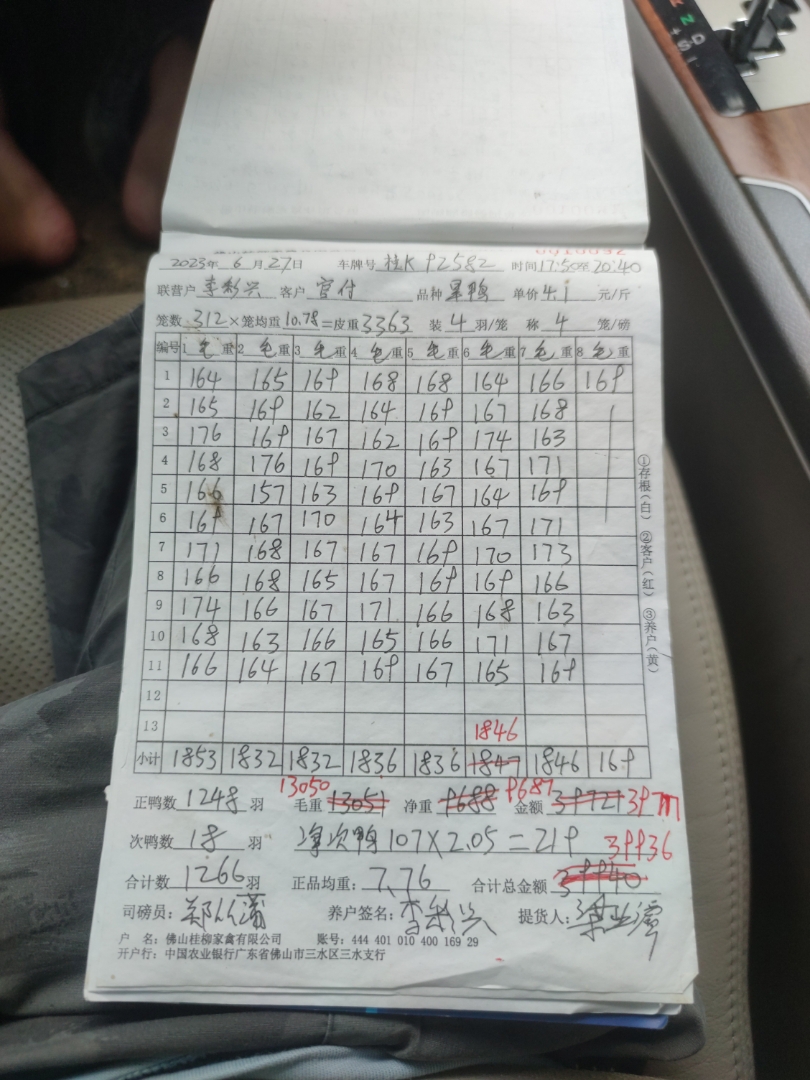 2023年 6月27日 车牌号 桂K 92582 时间17:50至20:40
联营户 李彩兴 客户 官付 品种 黑鸭 单价4.1 元/斤
笼数 312×笼均重10.78=皮重3363 装 4 羽/笼 称 4 笼/磅
编号 1 毛重 2 毛重 3 毛重 4 毛重 5 毛重 6 毛重 7 毛重 8 毛重
1 164 165 169 168 168 164 166 169
2 165 169 162 164 169 167 168
3 176 169 167 162 169 174 163
4 168 176 169 170 163 167 171
5 166 157 163 169 167 164 169
6 169 167 170 164 163 167 171
7 171 168 167 167 169 170 173
8 166 168 165 167 169 169 166
9 174 166 167 171 166 168 163
10 168 163 166 165 166 171 167
11 166 164 167 169 167 165 169
12
13 1846
小计 1853 1832 1832 1836 1836 1847 1846 169
正鸭数 1248 羽 毛重 13051 13050 净重 9688 9687 金额 39721 39717
次鸭数 18 羽 净次鸭 107×2.05=219 39936
合计数 1266羽 正品均重: 7.76 合计总金额 39940
司磅员: 养户签名: 李彩兴 提货人:
户 名: 佛山桂柳家禽有限公司 账号: 444 401 010 400 169 29
开户行: 中国农业银行广东省佛山市三水区三水支行
①存根(白) ②客户(红) ③养户(黄)
N
S-D